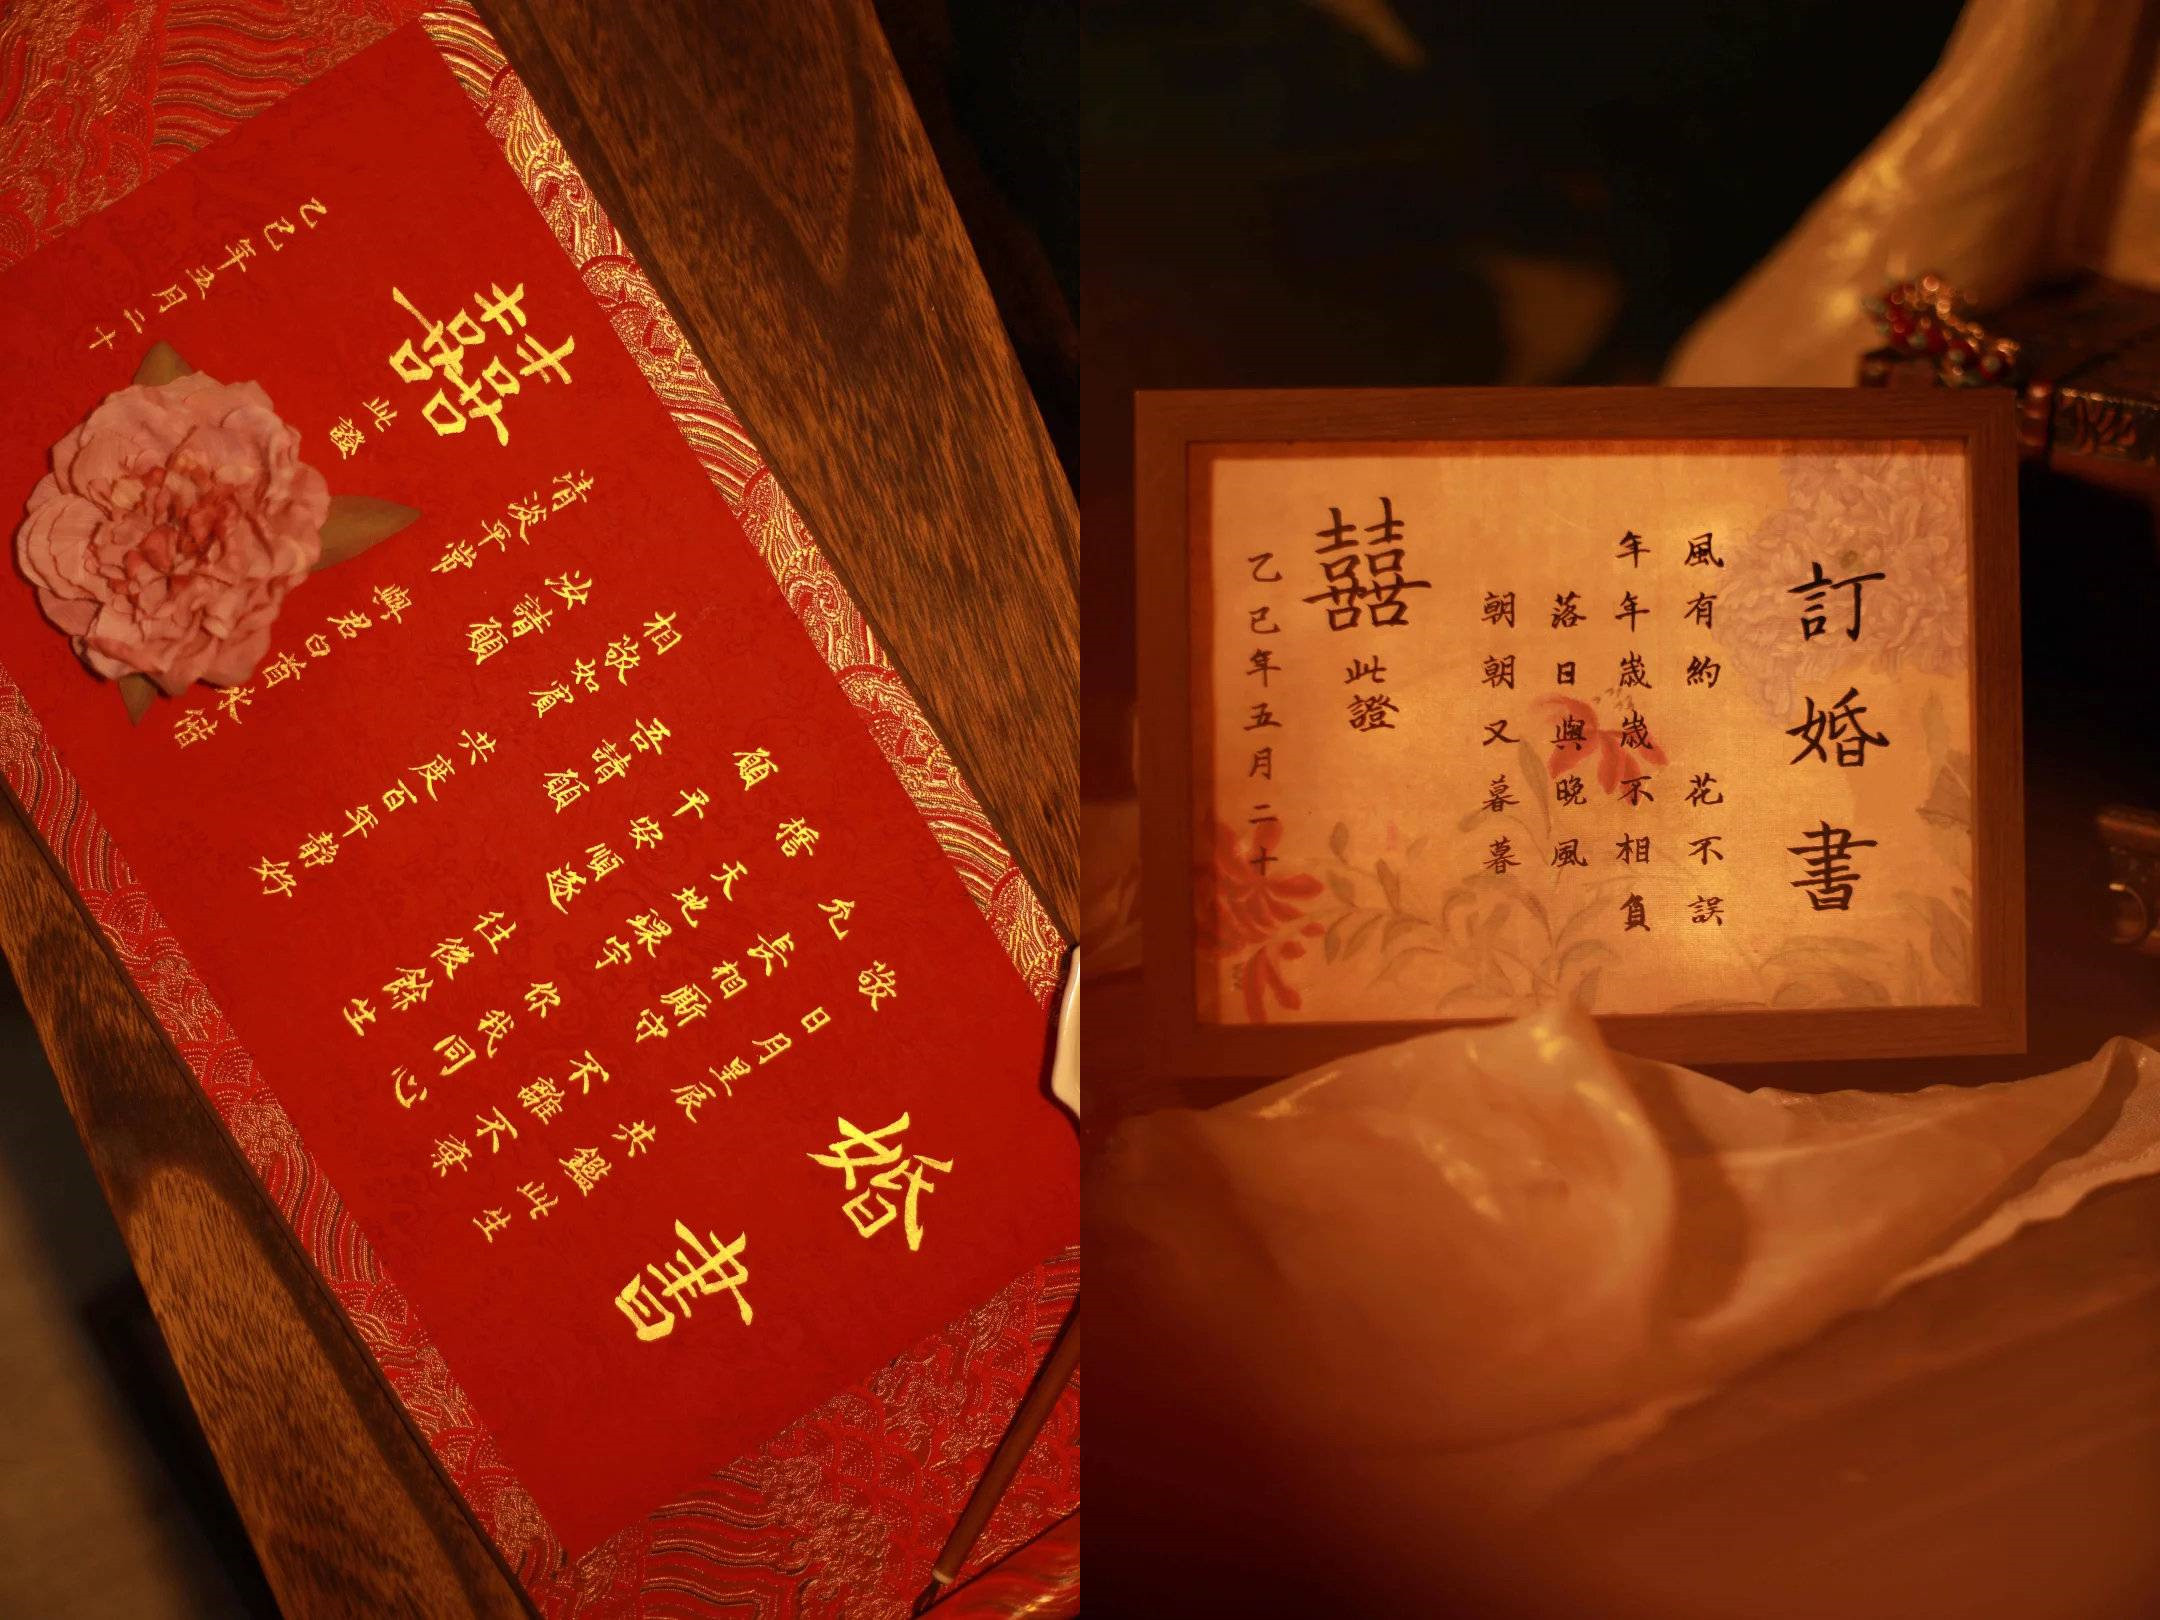 婚書
敬 日月星辰 共鑑此生
允 長相廝守 不離不棄
天地環宇 你我同心
願 平安順遂 往後餘生
吾請願
相敬如賓 共度百年靜好
汝請願
清淡平常 與君白首永偕
囍 此證
乙巳年五月二十
訂婚書
風有約 花不誤
年年歲歲不相負
落日與晚風
朝朝又暮暮
囍 此證
乙巳年五月二十